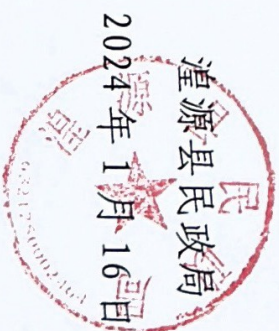 湟源县民政局
2024年1月16日